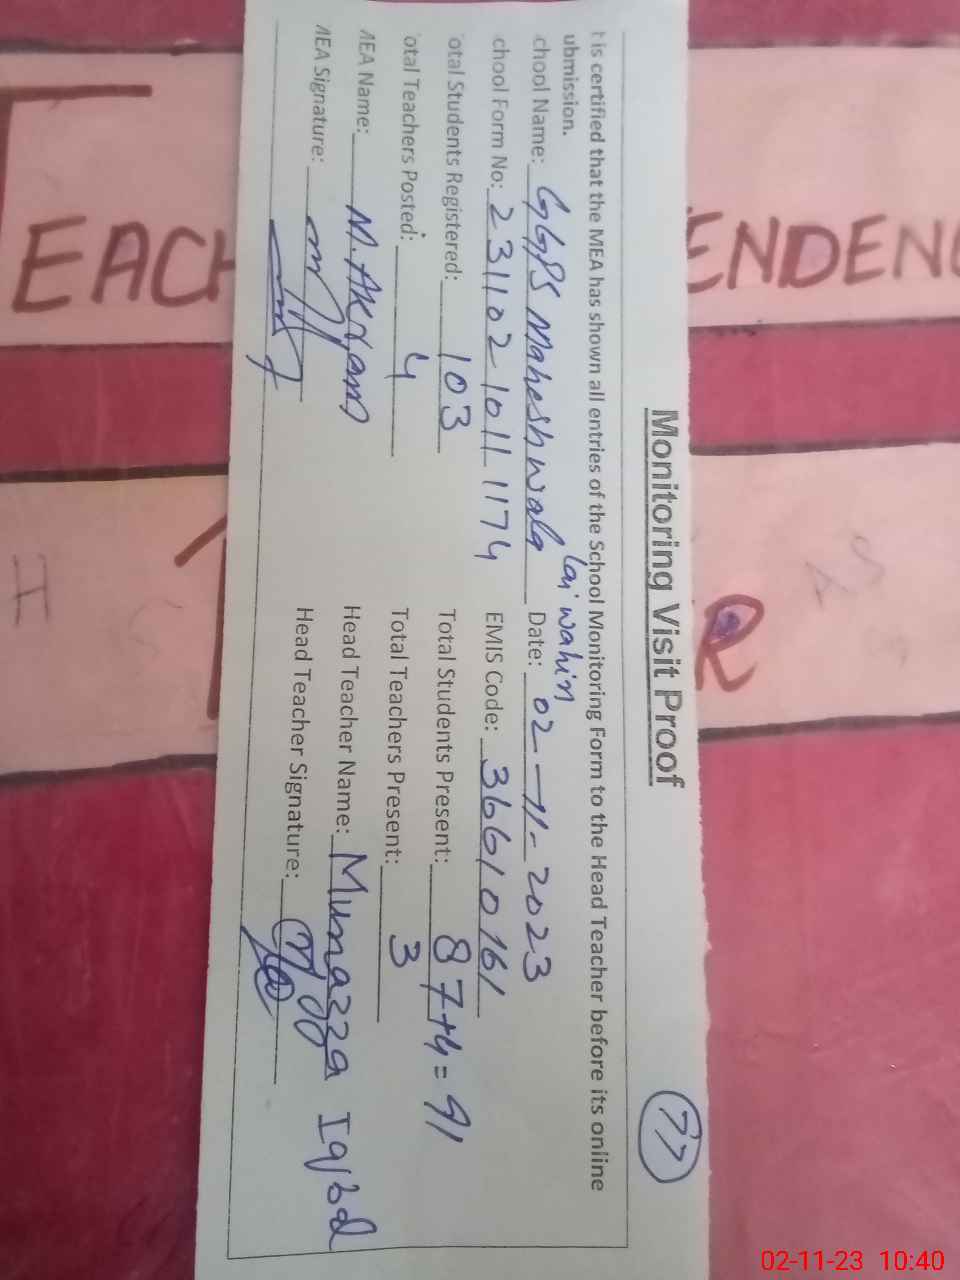 Monitoring Visit Proof
77
t is certified that the MEA has shown all entries of the School Monitoring Form to the Head Teacher before its online
ubmission.
chool Name: GGPS Maheshwala Lai wahin Date: 02-11-2023
chool Form No: 2311021011 1174 EMIS Code: 36610161
otal Students Registered: 103 Total Students Present: 87+4=91
otal Teachers Posted: 4 Total Teachers Present: 3
MEA Name: M. AKram Head Teacher Name: Mumazza Iqbal
MEA Signature: Head Teacher Signature:
TEACH ENDENC
R
02-11-23 10:40